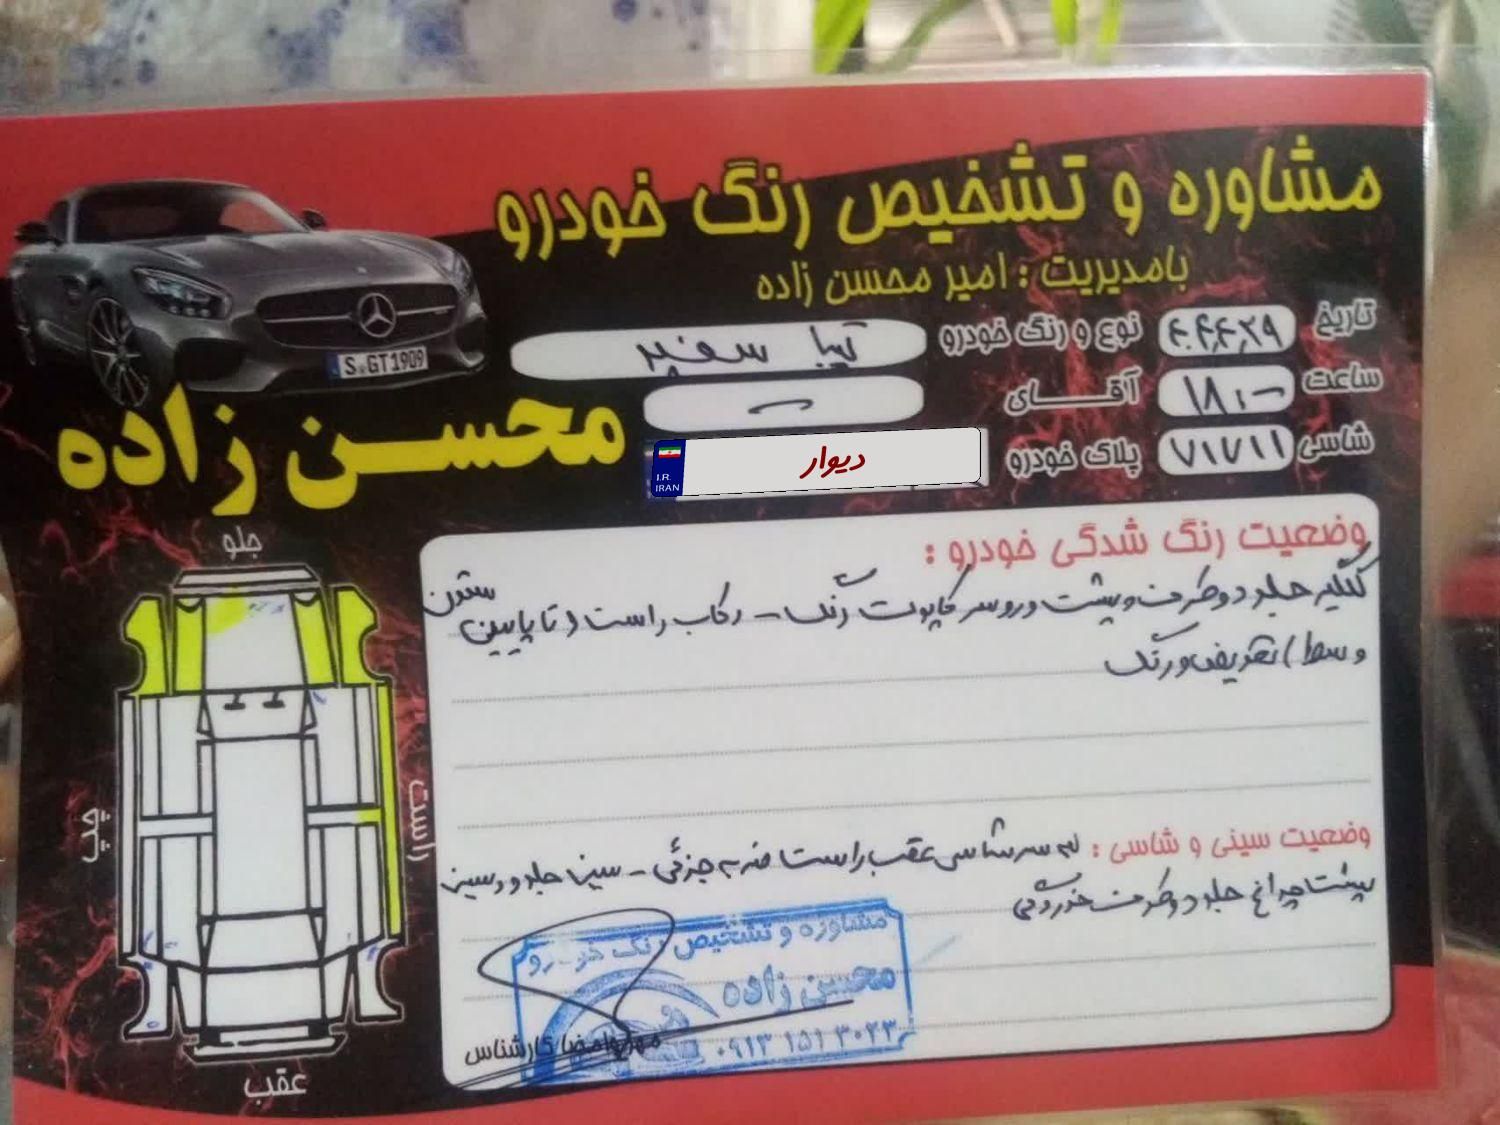 مشاوره و تشخیص رنگ خودرو
بامدیریت : امیر محسن زاده
تاریخ ۴۰۴٫۴٫۲۹ نوع و رنگ خودرو تیبا سفید
ساعت ۱۸:۰۰ آقای
شاسی ۷۱۷۱۱ پلاک خودرو دیوار
I.R.
IRAN
S GT1909
محسن زاده
جلو
چپ
راست
عقب
وضعیت رنگ شدگی خودرو :
گلگیر جلو دو طرف و پشت و رو سر کاپوت رنگ - رکاب راست (تا پایین ستون
وسط) تعویض و رنگ
وضعیت سینی و شاسی : لبه سرشاسی عقب راست ضربه جزئی - سینی جلو و سینی
پشت چراغ جلو دو طرف خوردگی
مشاوره و تشخیص رنگ خودرو
محسن زاده
۰۹۱۳ ۱۵۱ ۳۰۲۳
مهر و امضا کارشناس